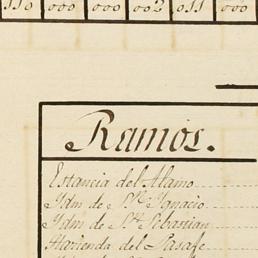 110 000 000 002 011 000
Ramos.
Estancia del Alamo
Idm de Sn. Ignacio
Idm de Sn. Sebastian
Hazienda del Pasage